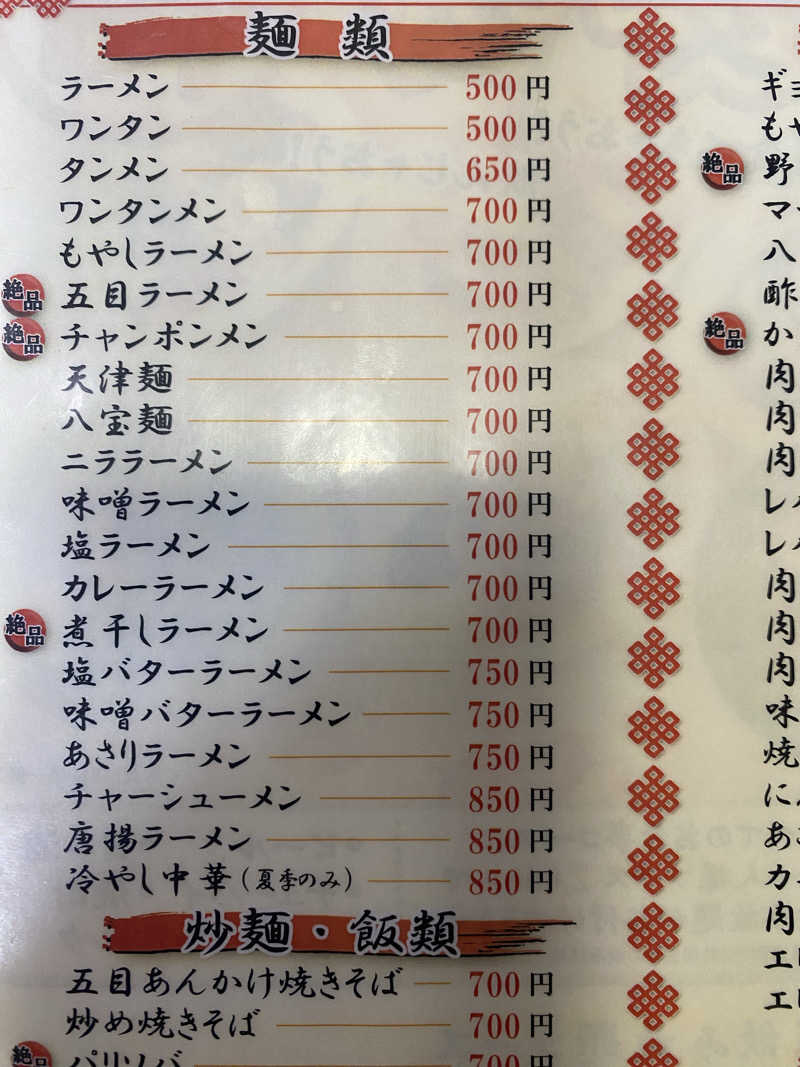 麺類
ラーメン 500円
ワンタン 500円
タンメン 650円
ワンタンメン 700円
もやしラーメン 700円
絶品 五目ラーメン 700円
絶品 チャンポンメン 700円
天津麺 700円
八宝麺 700円
ニララーメン 700円
味噌ラーメン 700円
塩ラーメン 700円
カレーラーメン 700円
絶品 煮干しラーメン 700円
塩バターラーメン 750円
味噌バターラーメン 750円
あさりラーメン 750円
チャーシューメン 850円
唐揚ラーメン 850円
冷やし中華(夏季のみ) 850円
炒麺・飯類
五目あんかけ焼きそば 700円
炒め焼きそば 700円
絶品 パリソバ 700円
ギョ
もや
絶品 野
マー
八
酢
絶品 か
肉
肉
肉
レ
レ
肉
肉
肉
味
焼
に
あ
カ
肉
エ
エ